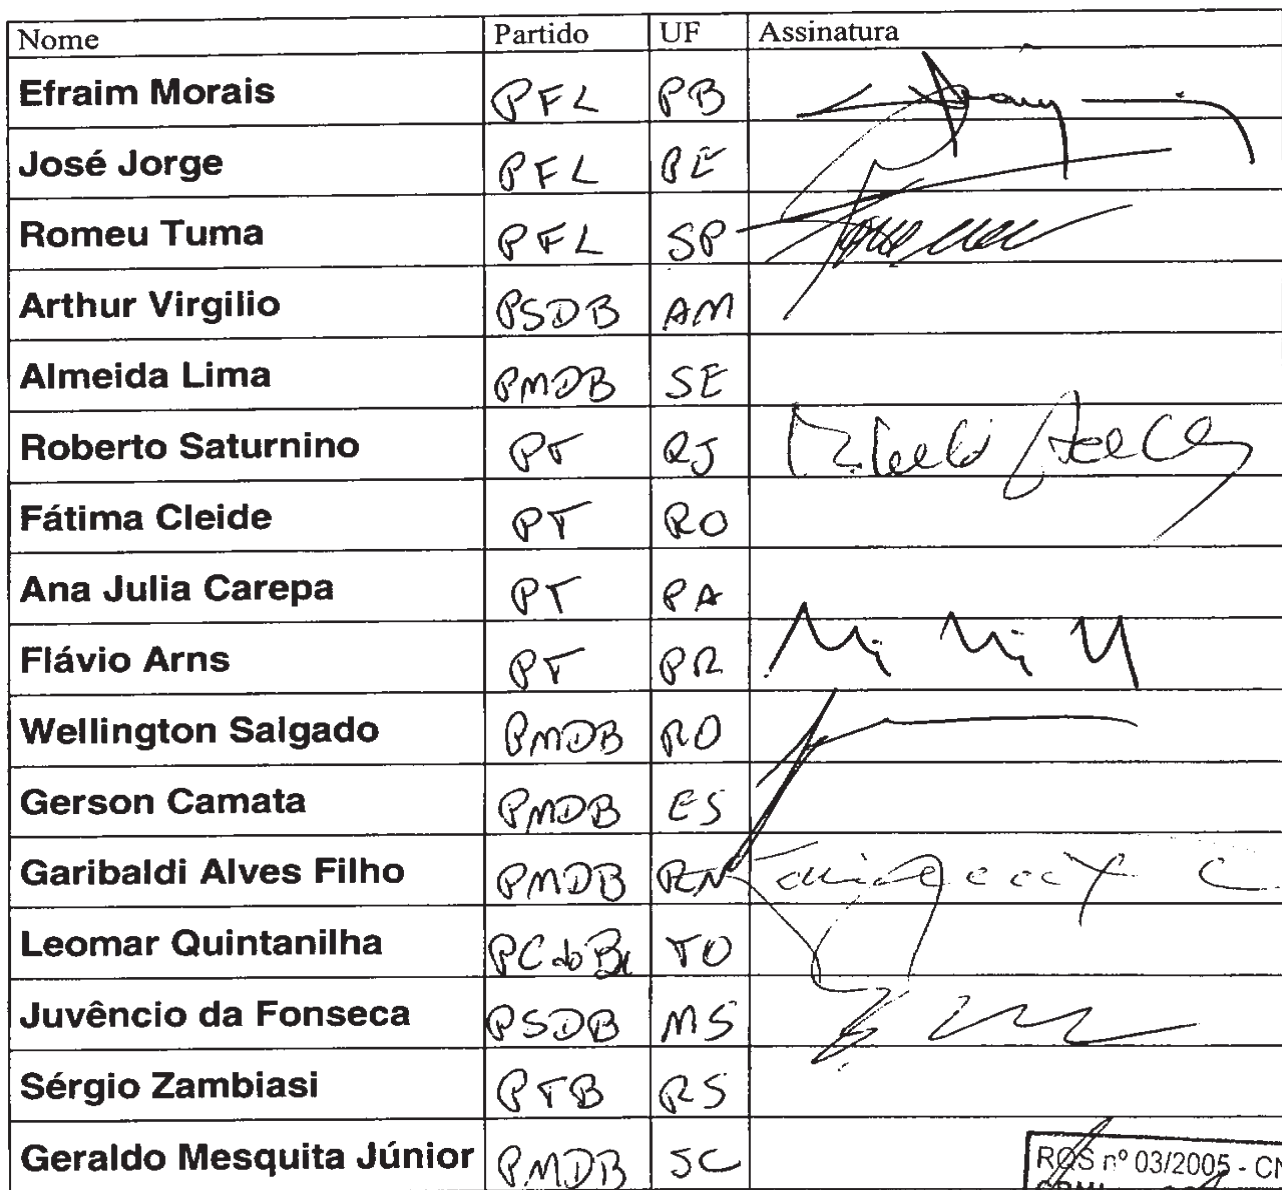 Nome Partido UF Assinatura
Efraim Morais PFL PB
José Jorge PFL PE
Romeu Tuma PFL SP
Arthur Virgilio PSDB AM
Almeida Lima PMDB SE
Roberto Saturnino PT RJ
Fátima Cleide PT RO
Ana Julia Carepa PT PA
Flávio Arns PT PR
Wellington Salgado PMDB RO
Gerson Camata PMDB ES
Garibaldi Alves Filho PMDB RN
Leomar Quintanilha PCdoB TO
Juvêncio da Fonseca PSDB MS
Sérgio Zambiasi PTB RS
Geraldo Mesquita Júnior PMDB SC
RQS nº 03/2005 - CN